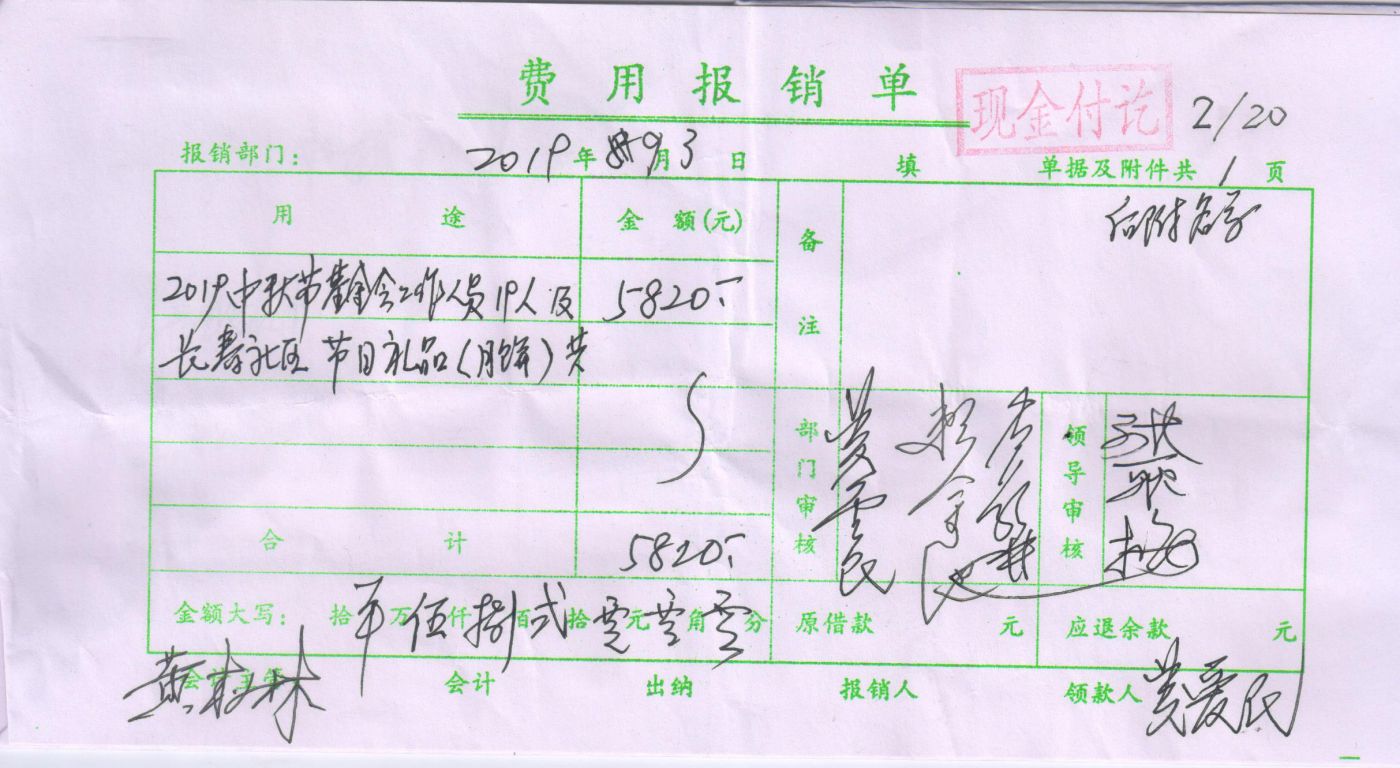 费用报销单
现金付讫
2/20
报销部门： 2019年 9月3日 填 单据及附件共 1 页
用 途 金 额(元) 备注 后附名字
2019中秋节基金会工作人员19人及 5820.-
长寿社区 节日礼品(月饼)共
部门审核 领导审核
合 计 5820.-
金额大写： 拾 万伍仟捌百弍拾零元零角零分 原借款 元 应退余款 元
会计 出纳 报销人 领款人 黄爱民